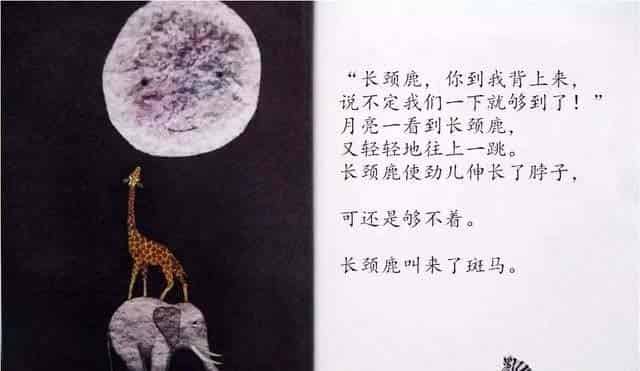 “长颈鹿，你到我背上来，
说不定我们一下就够到了！”
月亮一看到长颈鹿，
又轻轻地往上一跳。
长颈鹿使劲儿伸长了脖子，
可还是够不着。
长颈鹿叫来了斑马。